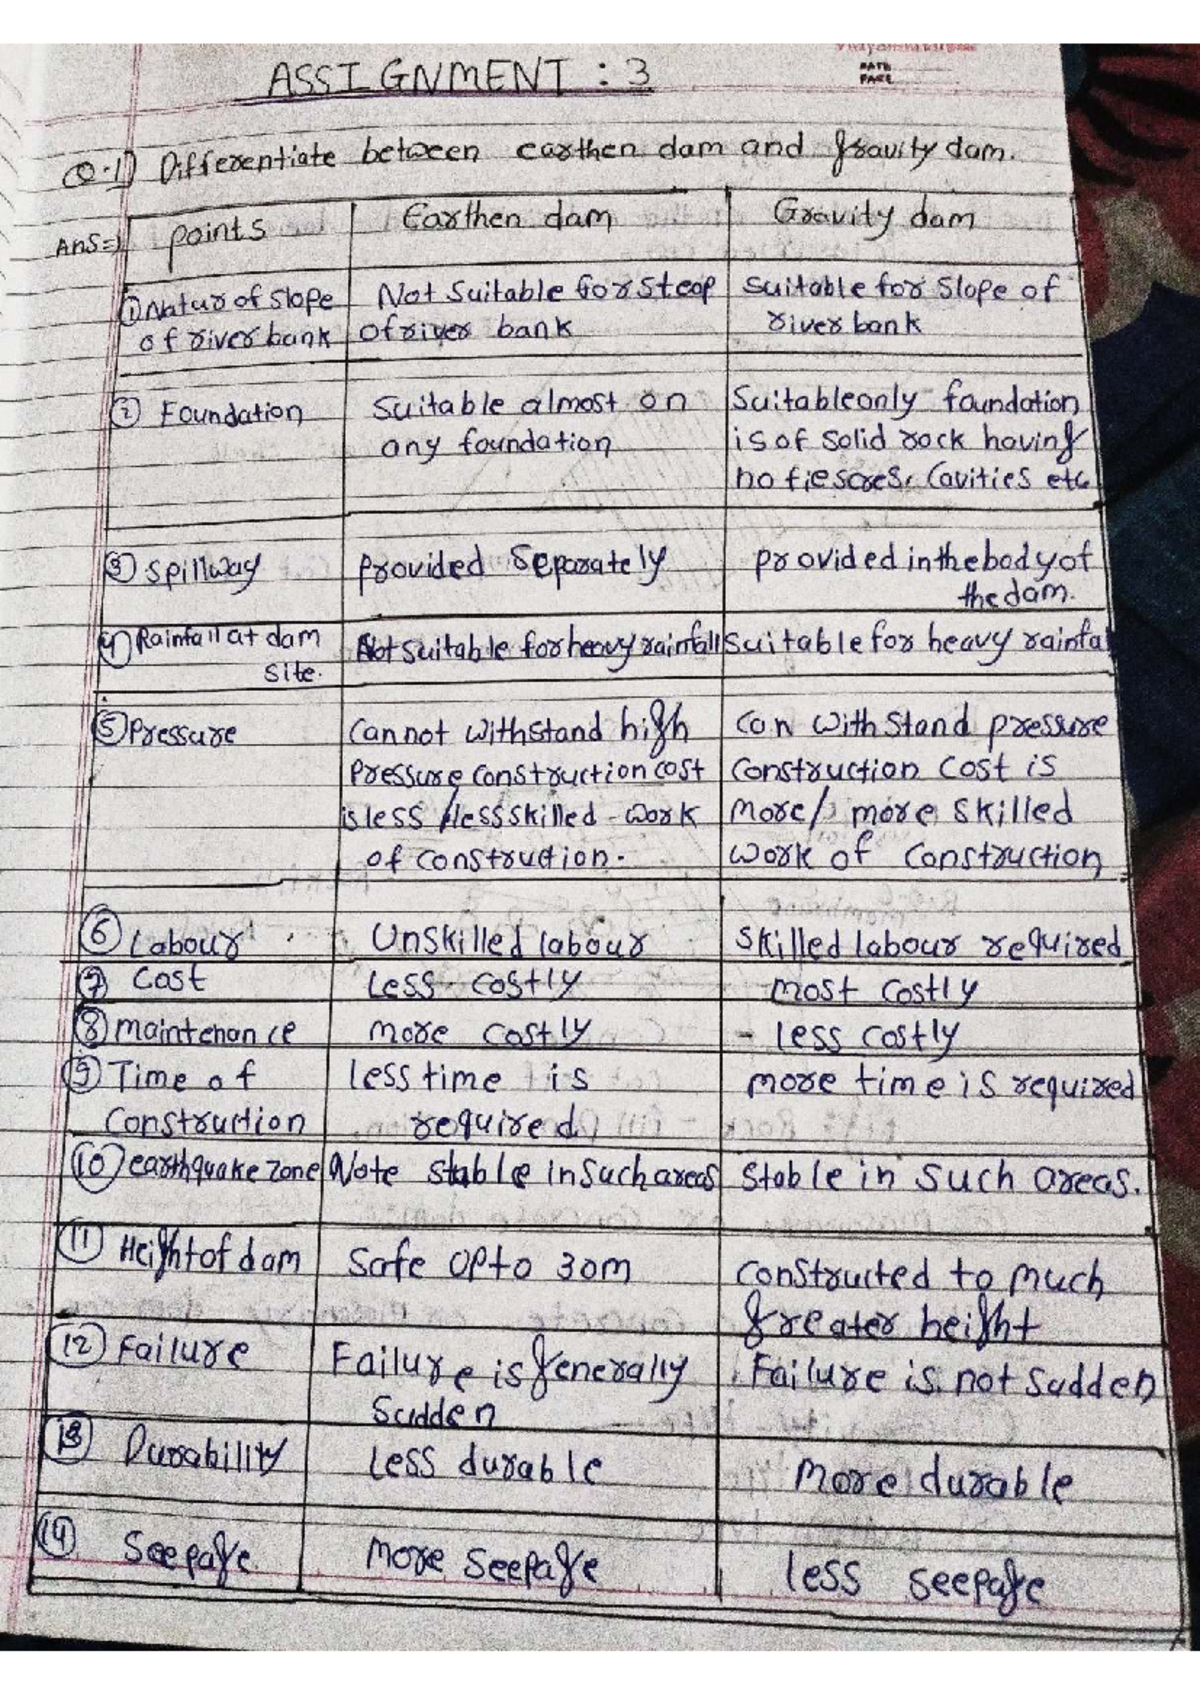 DATE
PAGE
ASSIGNMENT : 3
Q.1) Differentiate between earthen dam and gravity dam.
Ans=> points Earthen dam Gravity dam
① Natur of slope Not suitable for steep suitable for slope of
of river bank of river bank river bank
② Foundation Suitable almost on Suitable only foundation
any foundation is of solid rock having
no fiesores, Cavities etc
③ Spillway provided separately provided in the body of
the dam.
4) Rainfall at dam Not suitable for heavy rainfall suitable for heavy rainfal
site.
⑤ Pressure Cannot withstand high Can withstand pressure
pressure construction cost construction cost is
is less / less skilled - work more / more skilled
of construction. work of construction
⑥ Labour Unskilled labour skilled labour required
⑦ Cost Less costly most costly
⑧ maintenance more costly - less costly
⑨ Time of less time is more time is required
Construction required
⑩ earthquake zone Note stable in such areas Stable in such areas.
⑪ Height of dam Safe Upto 30m constructed to much
greater height
⑫ Failure Failure is generally Failure is not sudden
Sudden
⑬ Durability Less durable More durable
⑭ Seepage More seepage less seepage